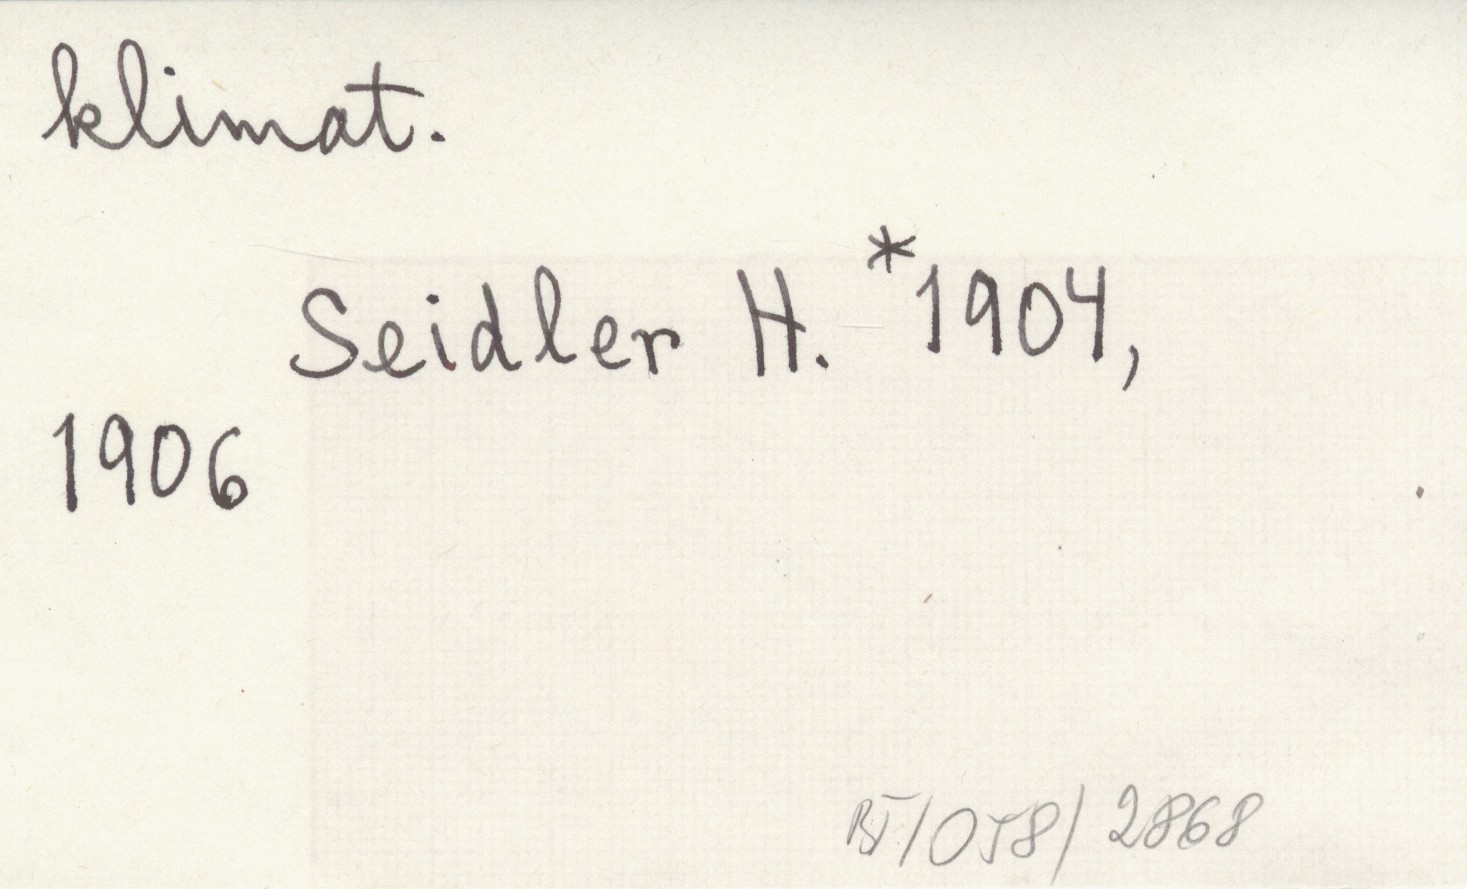 klimat.
Seidler H. *1904,
1906
BT/058/2868